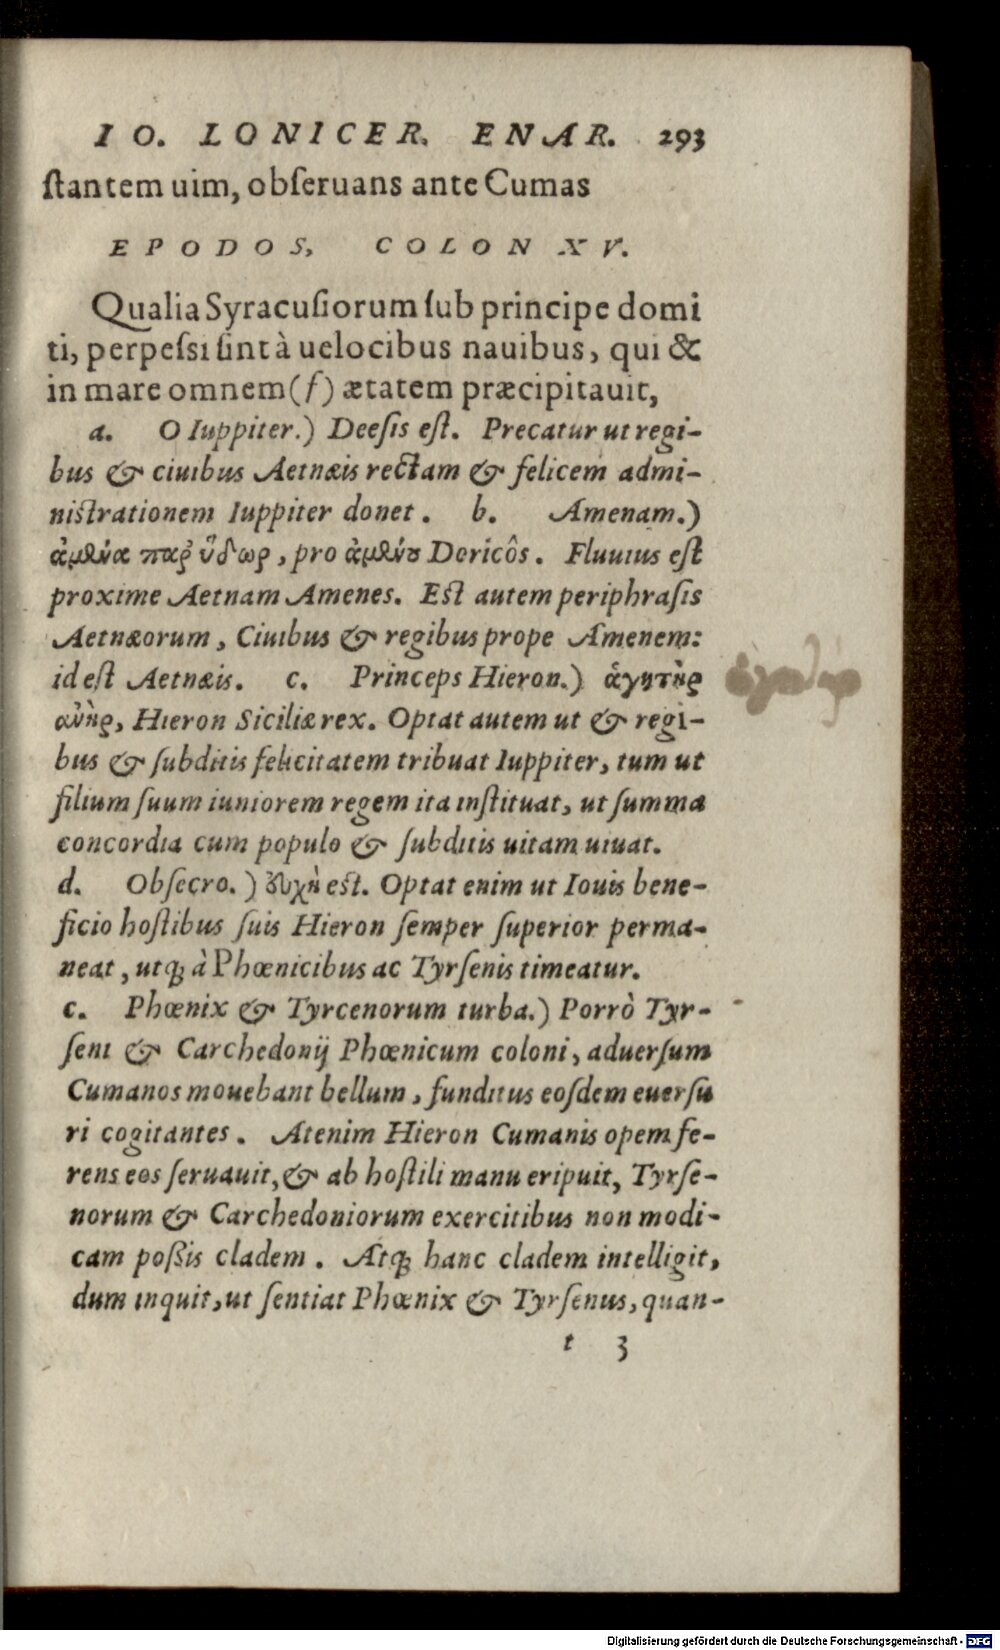 IO. LONICER. ENAR. 293
ſtantem uim, obſeruans ante Cumas
EPODOS, COLON XV.
Qualia Syracuſiorum ſub principe domi
ti, perpeſsi ſint à uelocibus nauibus, qui &
in mare omnem (f) ætatem præcipitauit,
a. O Iuppiter.) Deeſis eſt. Precatur ut regi-
bus & ciuibus Aetnæis rectam & felicem admi-
niſtrationem Iuppiter donet. b. Amenam.)
ἀμένα παρ' ὕδωρ, pro ἀμένου Doricôs. Fluuius eſt
proxime Aetnam Amenes. Eſt autem periphraſis
Aetnæorum, Ciuibus & regibus prope Amenem:
id eſt Aetnæis. c. Princeps Hieron.) ἁγητὴρ
ἀνὴρ, Hieron Siciliæ rex. Optat autem ut & regi-
bus & ſubditis felicitatem tribuat Iuppiter, tum ut
filium ſuum iuniorem regem ita inſtituat, ut ſumma
concordia cum populo & ſubditis uitam uiuat.
d. Obſecro.) εὐχὴ eſt. Optat enim ut Iouis bene-
ficio hoſtibus ſuis Hieron ſemper ſuperior perma-
neat, utq; à Phœnicibus ac Tyrſenis timeatur.
c. Phœnix & Tyrcenorum turba.) Porrò Tyr-
ſeni & Carchedonij Phœnicum coloni, aduerſum
Cumanos mouebant bellum, funditus eoſdem euerſu
ri cogitantes. Atenim Hieron Cumanis opem fe-
rens eos ſeruauit, & ab hoſtili manu eripuit, Tyrſe-
norum & Carchedoniorum exercitibus non modi-
cam poßis cladem. Atq; hanc cladem intelligit,
dum inquit, ut ſentiat Phœnix & Tyrſenus, quan-
t 3
Digitalisierung gefördert durch die Deutsche Forschungsgemeinschaft - DFG